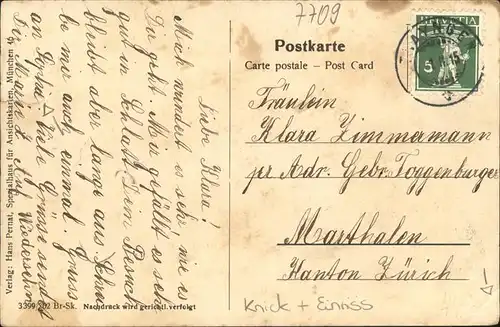 7709
Postkarte
Carte postale – Post Card
HELVETIA
5
Fräulein
Klara Zimmermann
per Adr. Gebr. Toggenburger
Marthalen
Kanton Zürich
Knick + Einriss
Liebe Klara!
Mich wundert es sehr wie es
Dir geht. Mir gefällt es sehr
gut in Schlatt. Dein Besuch
bleibt aber lange aus. Schreibe
be mir auch einmal. Gruss
an Sophie. Viele Grüsse sendet
Dir Marie Z. Auf Wiedersehen
Verlag: Hans Pernat, Spezialhaus für Ansichtskarten, München 9.
3399 502 Br-Sk. Nachdruck wird gerichtl. verfolgt